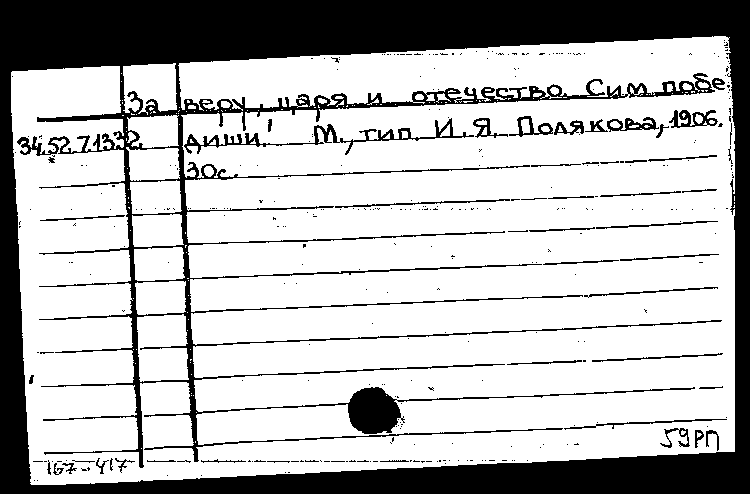 За веру, царя и отечество. Сим побе
34.52.7.1332. диши! М., тип. И. Я. Полякова, 1906.
30с.
59РП
167-417